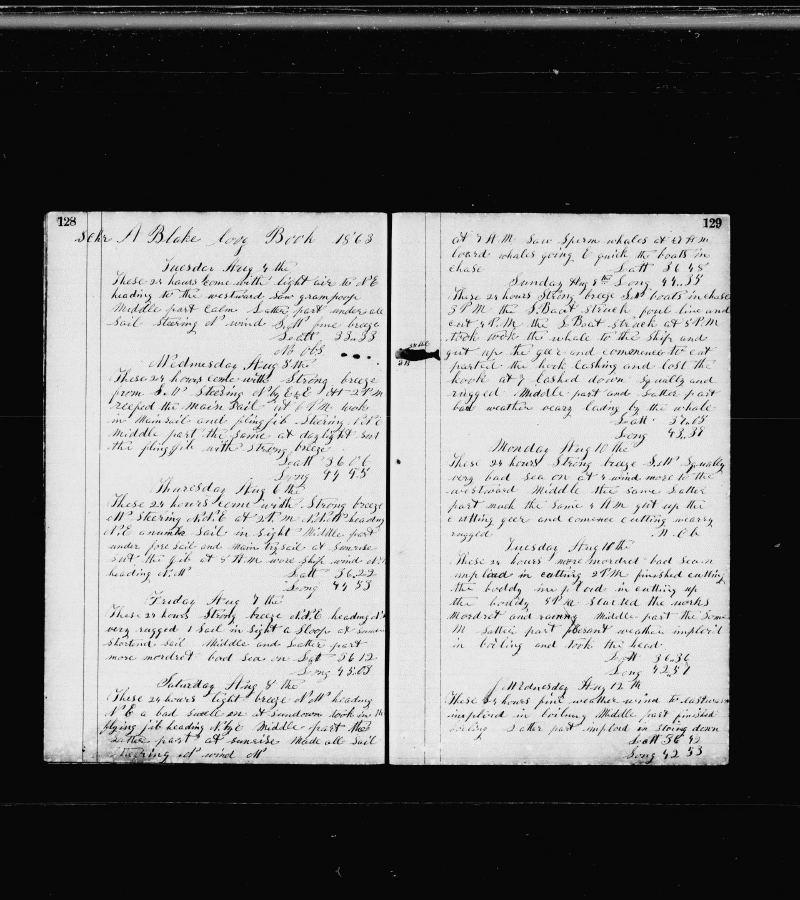 128
Schr A Blake log Book 1863
Tuesday Aug 4 the
These 24 hours come with light air to N E
heading to the westward Saw grampoop
Middle part Calm Latter part under all
Sail Steering N wind S.W fine breeze
Latt 33.33
No obs
Wednesday Aug 5 the
These 24 hours come with Strong breeze
from S.W Steering N by E & E At 2 P M
reefed the main Sail at 6 P M took
in Mainsail and flingjib Steering
middle part the Same at daylight Sut
the flingjib with Strong breeze
Latt 36 06
Long 44 45
Thursday Aug 6 the
These 24 hours come with Strong breeze
Steering N.E at 2 P. M N.N.W heading
N.E a number Sail in Sight Middle part
under fore sail and Main trysail at Sunrise
Sut the jib at 8 A M wore Ship wind
heading N.W Latt 36.22
Long 44 53
Friday Aug 7 the
These 24 hours Strong breeze N.N.E heading
very rugged 1 Sail in Sight a Sloop at
Shortind Sail Middle and Latter part
more mordret bad Sea on Latt 36 12
Long 45.03
Saturday Aug 8 the
These 24 hours light breeze N.W heading
N E a bad Swell on at Sundown took in the
flying jib heading N by E Middle part the
Latter part at Sunrise Made all Sail
Steering N wind W
129
at 7 A M Saw Sperm whales at
loard whales going E quick the boats in
chase Latt 36 48
Sunday Aug 9th Long 44.35
These 24 hours Strong breeze S.W boats in chase
3 P M the S Boat Struck foul line and
cut 4 P. M the S Boat Struck at 5 P M
took the whale to the Ship and
gut up the geer and comenced to cut
parted the hook Lashing and lost the
hook at 7 lashed down Squally and
rugged Middle part and Latter part
bad weather veary lading by the whale
Latt 37.05
Long 43.38
Monday Aug 10 the
These 24 hours Strong breeze S.W Squally
very bad Sea on at 4 wind more to the
westward Middle the Same Latter
part much the Same 4 A M gut up the
cutting geer and comence cutting
rugged N. Ob
Tuesday Aug 11 the
These 24 hours more mordret bad Sea on
imploid in cutting 2 P M finished cutting
the boddy imploid in cutting up
the boddy 8 P M Started the works
Mordret and Middle part the Same
M Latter part plesant weather imploid
in boiling and took the head
Latt 36.36
Long 42.57
Wednesday Aug 12 th
These 24 hours fine weather wind to eastward
imploid in boiling Middle part finished
boiling Latter part imploid in Stoing down
Latt 36 42
Long 42 53